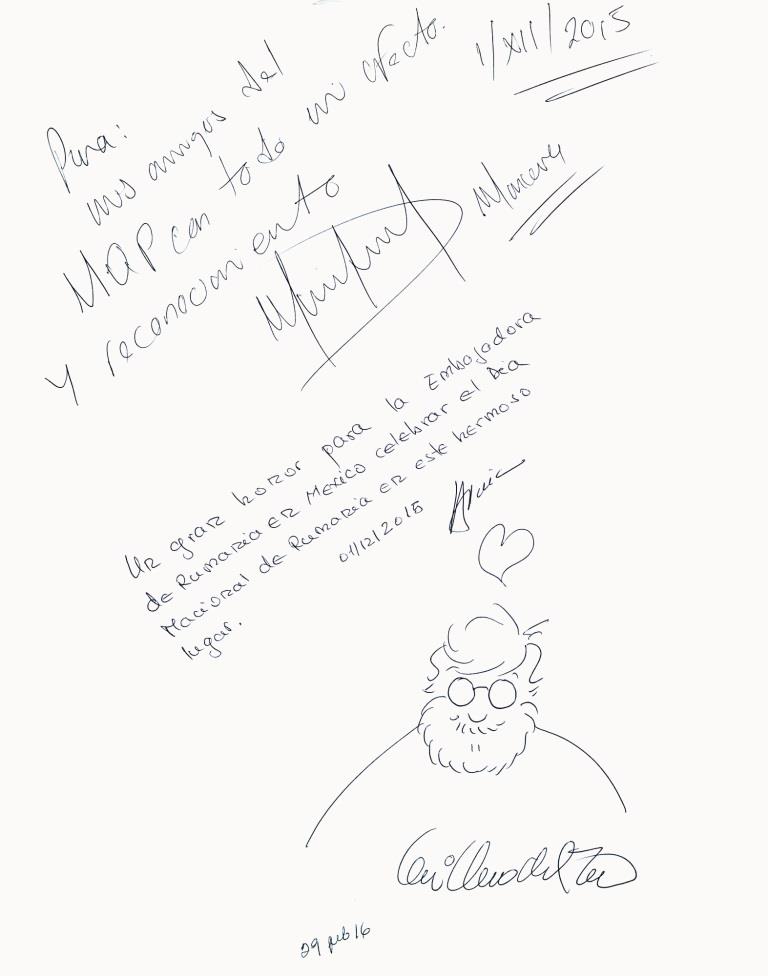 1/XII/2015
Para:
mis amigos del
MAP con todo mi afecto.
y reconocimiento
Un gran honor para la Embajadora
de Rumania en Mexico celebrar el Dia
Nacional de Rumania en este hermoso
lugar.
01/12/2015
Guillermo del Toro
29 feb 16